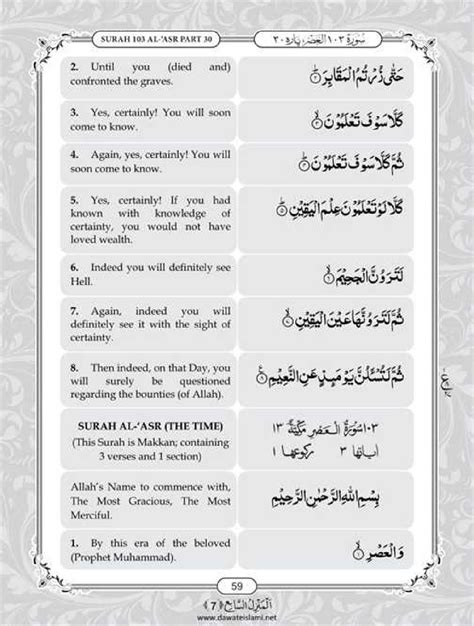 SURAH 103 AL-‘ASR PART 30
سُوْرَۃُ ۱۰۳ الْعَصْر، پارہ ۳۰
2. Until you (died and)
confronted the graves.
حَتّٰی زُرْتُمُ الْمَقَابِرَ ؕ﴿۲﴾
3. Yes, certainly! You will soon
come to know.
کَلَّا سَوْفَ تَعْلَمُوْنَ ۙ﴿۳﴾
4. Again, yes, certainly! You will
soon come to know.
ثُمَّ کَلَّا سَوْفَ تَعْلَمُوْنَ ؕ﴿۴﴾
5. Yes, certainly! If you had
known with knowledge of
certainty, you would not have
loved wealth.
کَلَّا لَوْ تَعْلَمُوْنَ عِلْمَ الْیَقِیْنِ ؕ﴿۵﴾
6. Indeed you will definitely see
Hell.
لَتَرَوُنَّ الْجَحِیْمَ ۙ﴿۶﴾
7. Again, indeed you will
definitely see it with the sight of
certainty.
ثُمَّ لَتَرَوُنَّهَا عَیْنَ الْیَقِیْنِ ۙ﴿۷﴾
8. Then indeed, on that Day, you
will surely be questioned
regarding the bounties (of Allah).
ثُمَّ لَتُسْـَٔلُنَّ یَوْمَىِٕذٍ عَنِ النَّعِیْمِ ﴿۸﴾
SURAH AL-‘ASR (THE TIME)
(This Surah is Makkan; containing
3 verses and 1 section)
۱۰۳ سُوْرَۃُ الْعَصْرِ مَکِّیَّۃٌ ۱۳
اٰیاتها ۳ رکوعها ۱
Allah’s Name to commence with,
The Most Gracious, The Most
Merciful.
بِسْمِ اللّٰهِ الرَّحْمٰنِ الرَّحِیْمِ
1. By this era of the beloved
(Prophet Muhammad).
وَ الْعَصْرِ ۙ﴿۱﴾
59
اَلْمَنْزِلُ السَّابِع ﴿7﴾
www.dawateislami.net